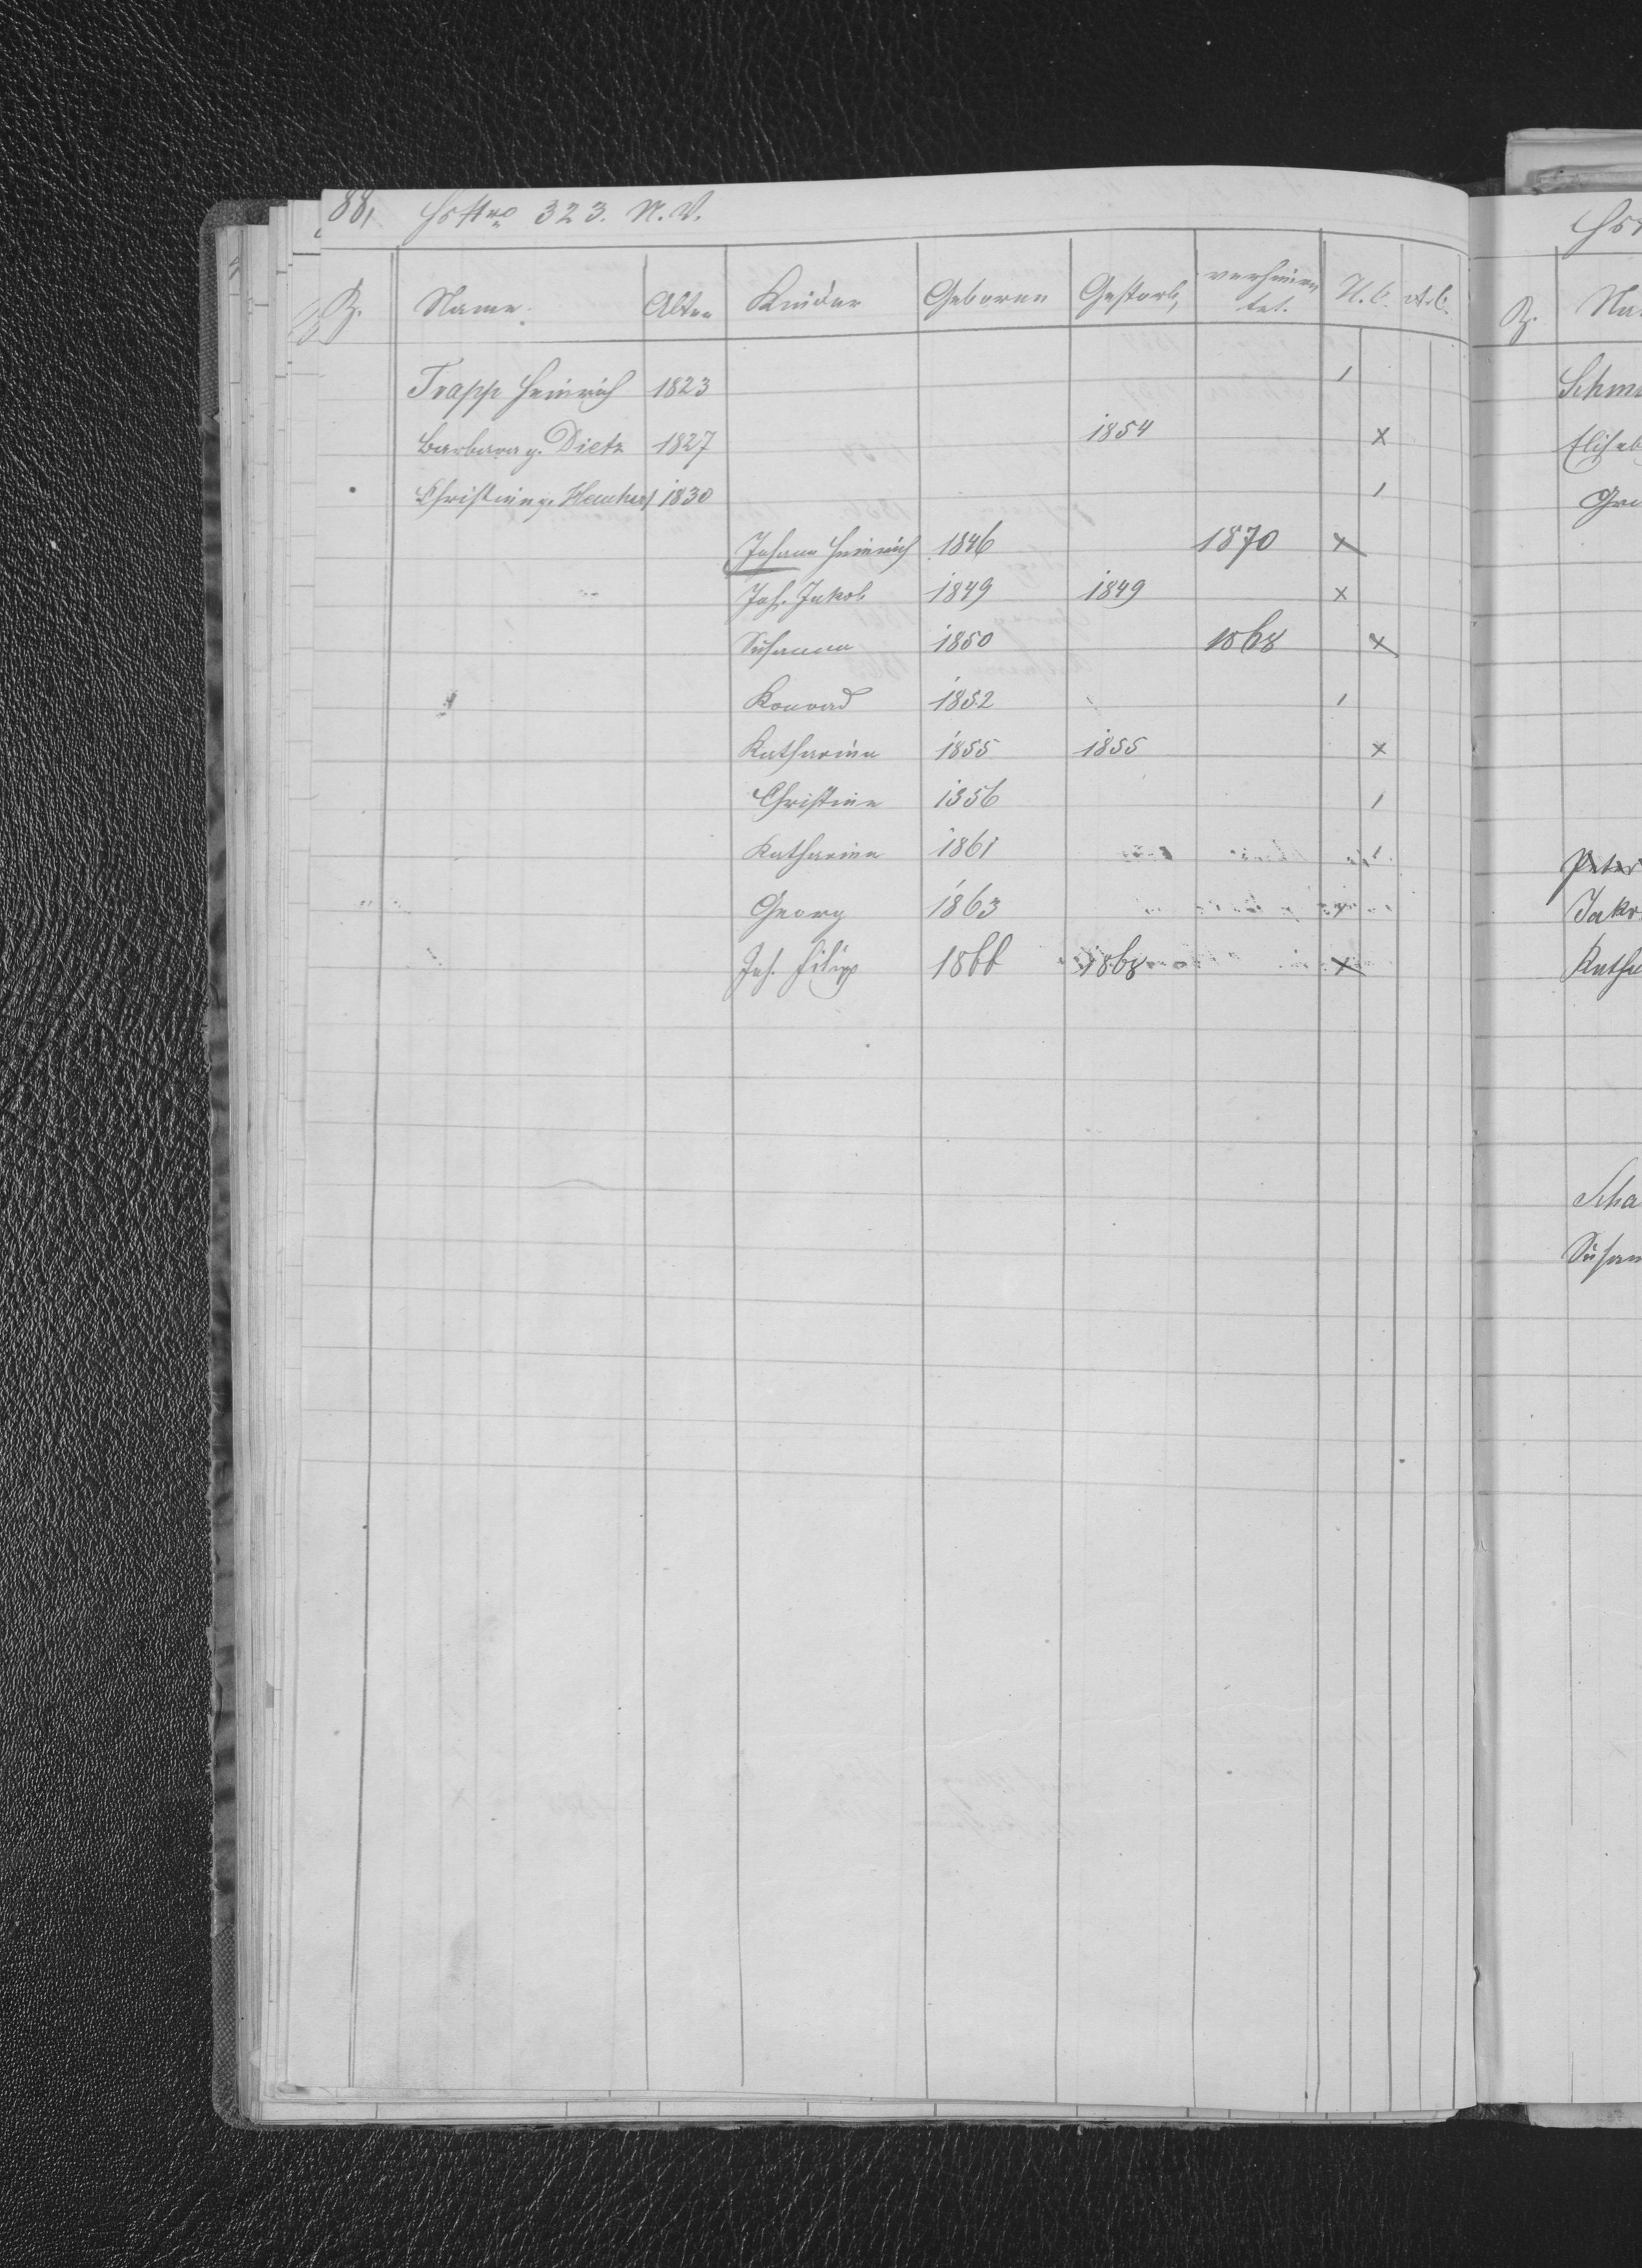 88, HsNro 323. N. V.
Z. Name. Alter Kinder Geboren Gestorb, verheira tet. N. C. A. C.
Trapp Heinrich 1823 1
Barbara g. Dietz 1827 1854 x
Christina g. 1830 1
Johann Heinrich 1846 1870 x
Joh. Jakob 1849 1849 x
Susanna 1850 1868 x
Konrad 1852 1
Katharina 1855 1855 x
Christina 1856 1
Katharina 1861 1
Georg 1863
Joh. Filipp 1866 1868 x
Z.
Schm
Elisab
Peter
Jako
Katha
Scha
Susan